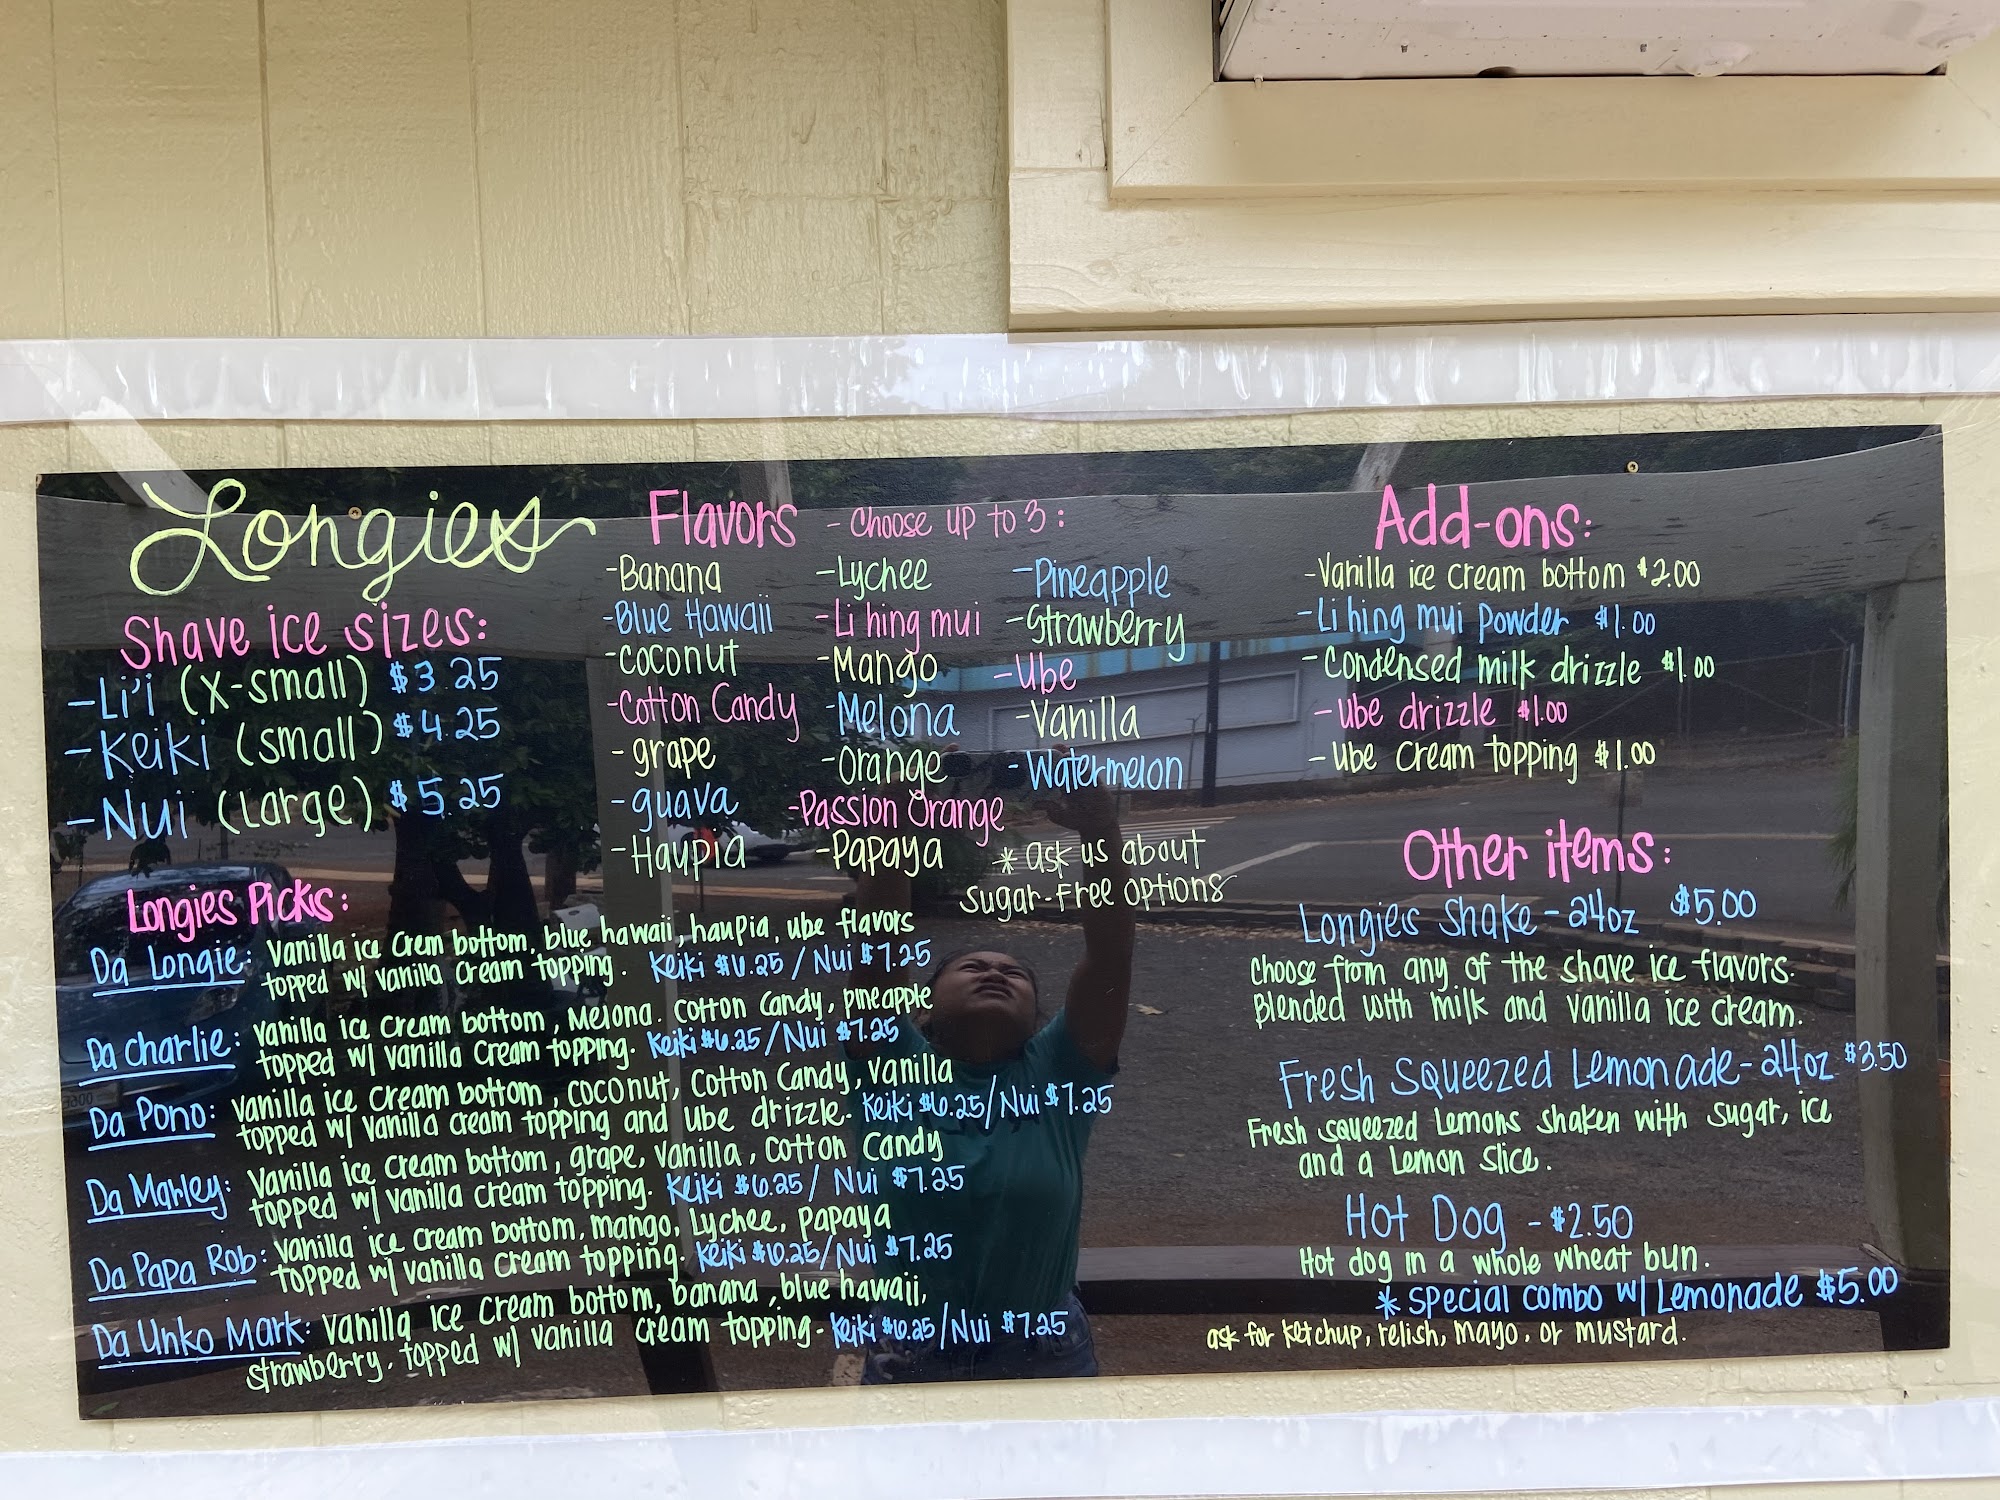 Longies
Shave ice sizes:
-Li'i (x-small) $3.25
-Keiki (small) $4.25
-Nui (Large) $5.25
Flavors - Choose up to 3:
-Banana
-Blue Hawaii
-Coconut
-Cotton Candy
-grape
-guava
-Haupia
-Lychee
-Li hing mui
-Mango
-Melona
-Orange
-Passion Orange
-Papaya
-Pineapple
-Strawberry
-Ube
-Vanilla
-Watermelon
* ask us about
sugar-Free options
Longies Picks:
Da Longie: Vanilla ice Crem bottom, blue hawaii, haupia, ube flavors
topped w/ vanilla cream topping. Keiki $6.25 / Nui $7.25
Da Charlie: Vanilla ice cream bottom, Melona. cotton candy, pineapple
topped w/ vanilla cream topping. Keiki $6.25 / Nui $7.25
Da Pono: Vanilla ice cream bottom, coconut, cotton candy, vanilla
topped w/ vanilla cream topping and ube drizzle. Keiki $6.25/Nui $7.25
Da Marley: Vanilla ice cream bottom, grape, vanilla, cotton candy
topped w/ vanilla cream topping. Keiki $6.25/ Nui $7.25
Da Papa Rob: Vanilla ice cream bottom, mango, Lychee, papaya
topped w/ vanilla cream topping. Keiki $6.25/Nui $7.25
Da Unko Mark: Vanilla ice cream bottom, banana, blue hawaii,
strawberry. topped w/ vanilla cream topping. Keiki $6.25/Nui $7.25
Add-ons:
-Vanilla ice cream bottom $2.00
-Li hing mui powder $1.00
-Condensed milk drizzle $1.00
-ube drizzle $1.00
-ube cream topping $1.00
Other items:
Longies Shake - 24oz $5.00
Choose from any of the shave ice flavors.
Blended with milk and vanilla ice cream.
Fresh Squeezed Lemonade - 24oz $3.50
Fresh squeezed Lemons shaken with sugar, ice
and a Lemon slice.
Hot Dog - $2.50
Hot dog in a whole wheat bun.
* special combo w/ Lemonade $5.00
ask for ketchup, relish, mayo, or mustard.